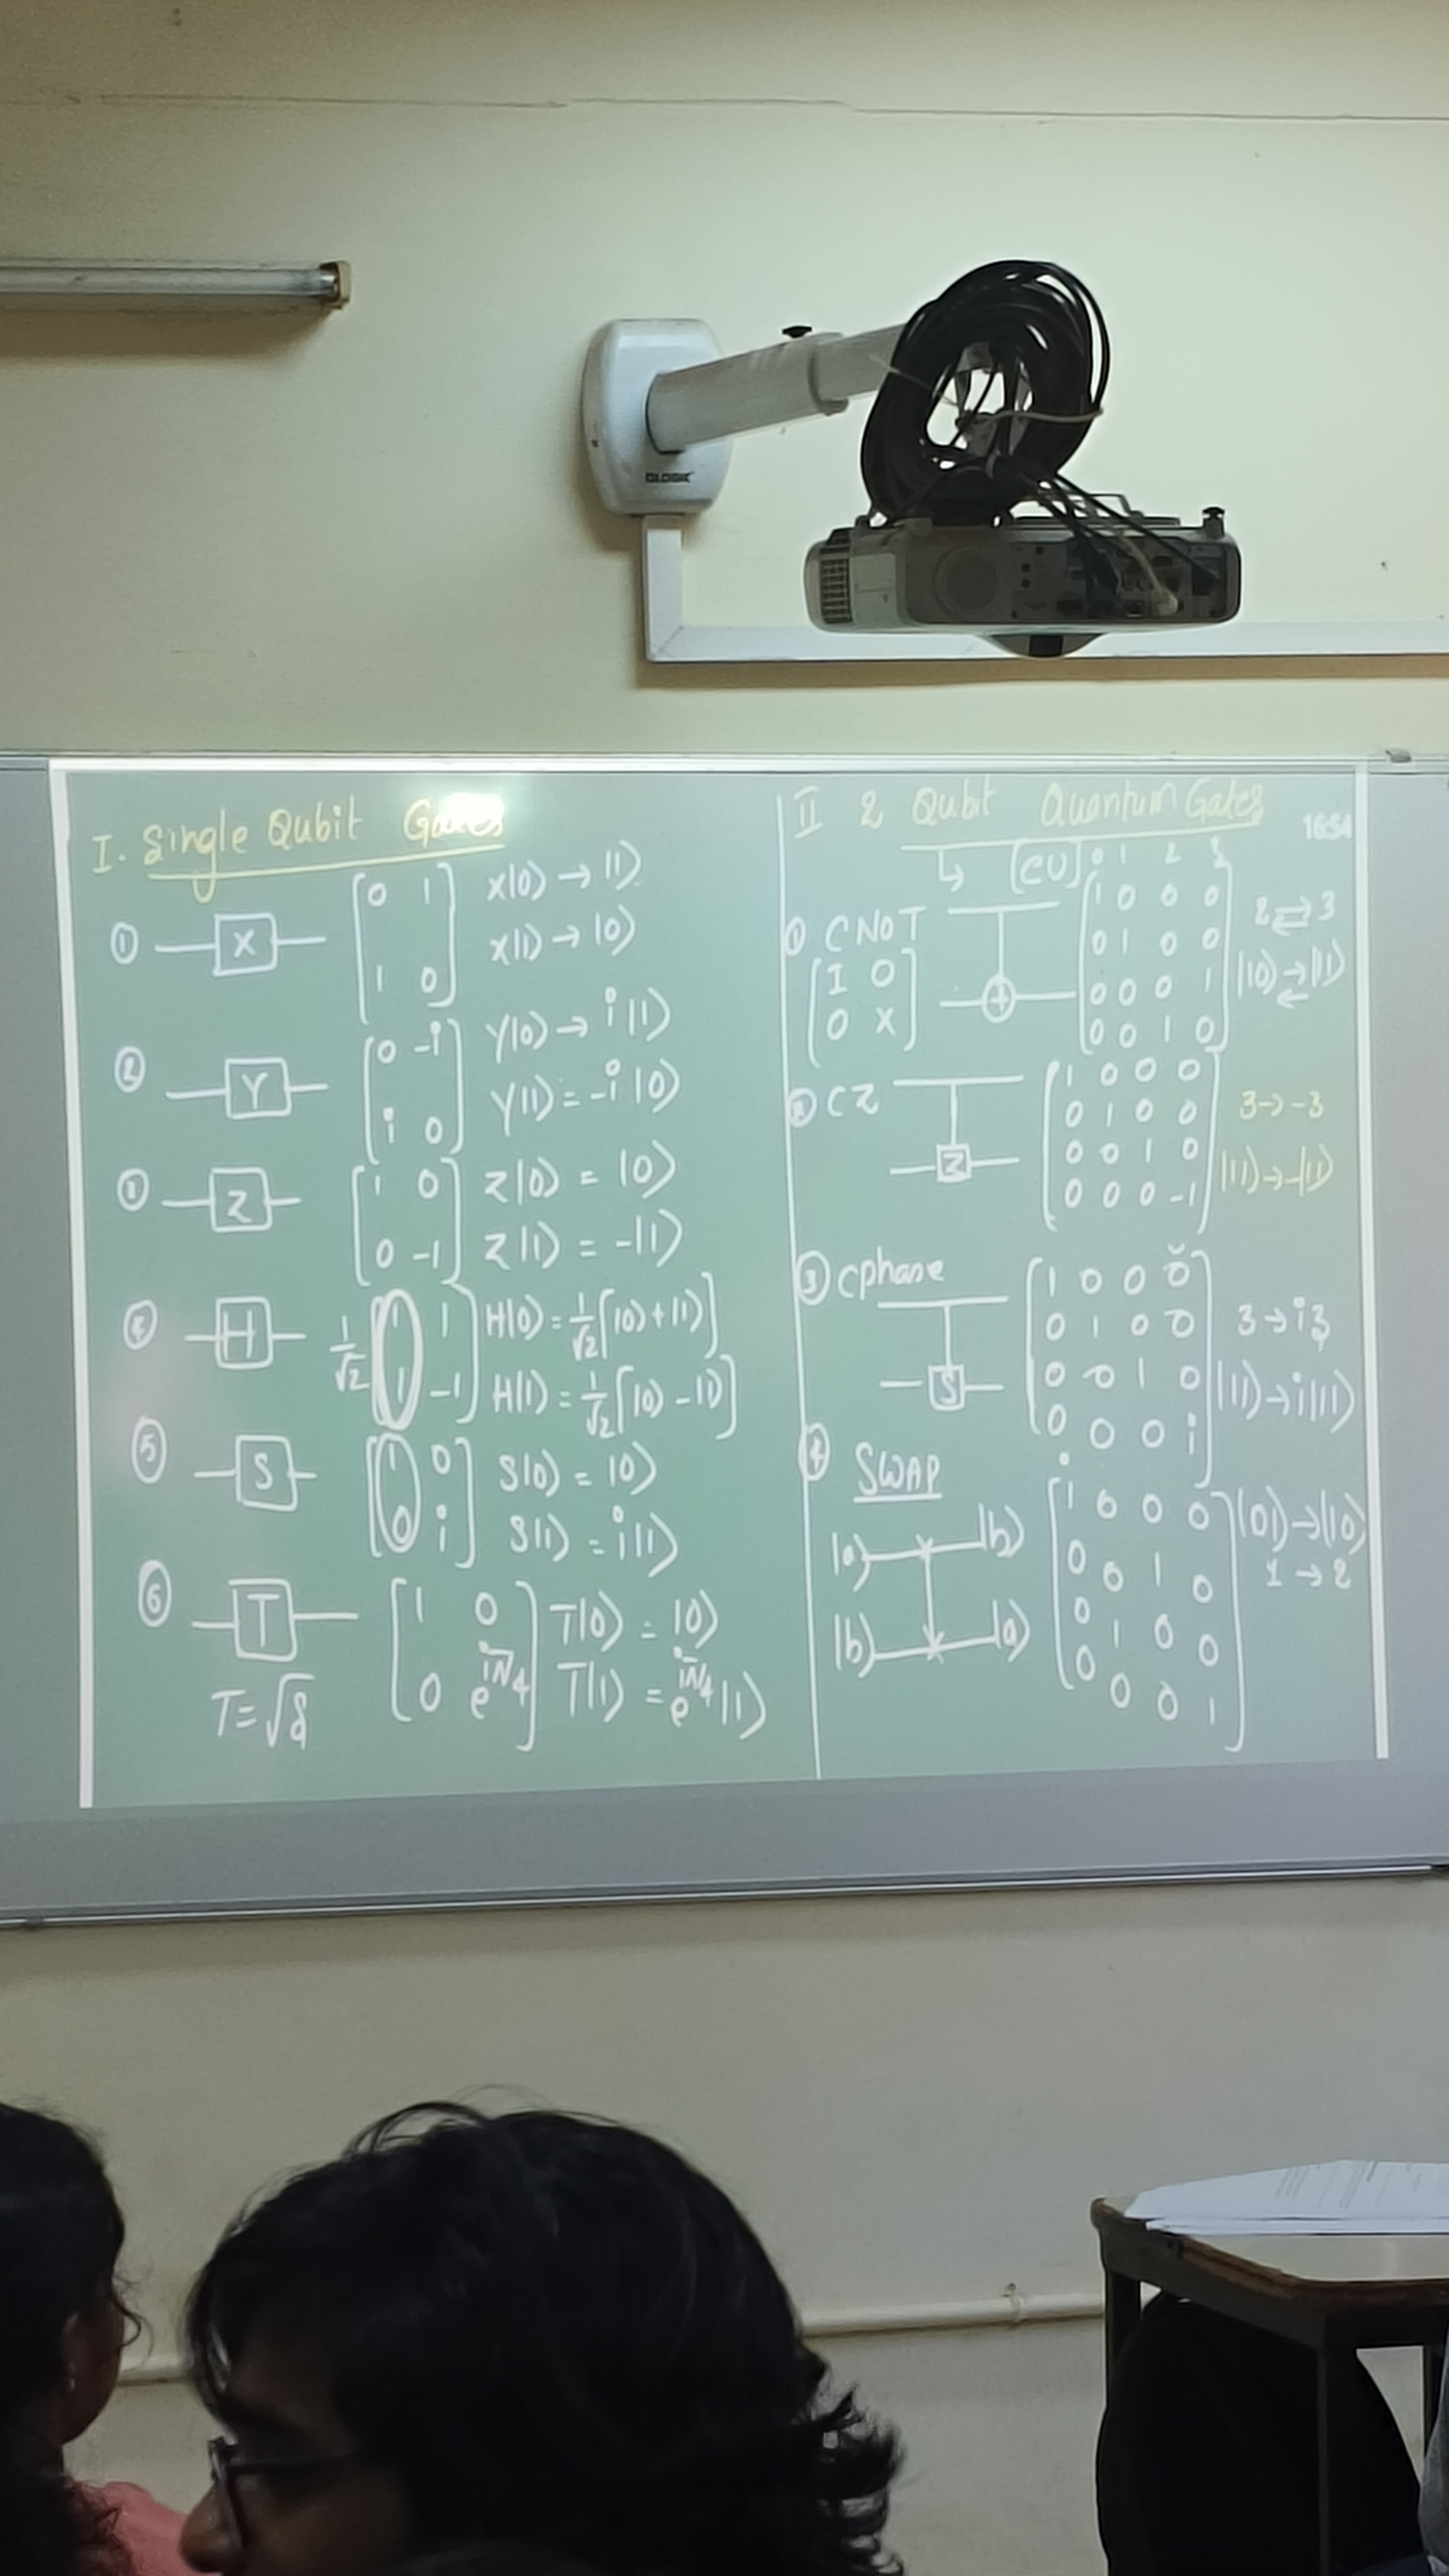 GLOGIK
I. Single Qubit Gates
① X [0 1 / 1 0] X|0⟩ → |1⟩
X|1⟩ → |0⟩
② Y [0 -i / i 0] Y|0⟩ → i|1⟩
Y|1⟩ = -i|0⟩
③ Z [1 0 / 0 -1] Z|0⟩ = |0⟩
Z|1⟩ = -|1⟩
④ H 1/√2 [1 1 / 1 -1] H|0⟩ = 1/√2 [|0⟩ + |1⟩]
H|1⟩ = 1/√2 [|0⟩ - |1⟩]
⑤ S [1 0 / 0 i] S|0⟩ = |0⟩
S|1⟩ = i|1⟩
⑥ T [1 0 / 0 e^iπ/4] T|0⟩ = |0⟩
T=√S T|1⟩ = e^iπ/4 |1⟩
II 2 Qubit Quantum Gates
16:54
↳ [CU] 0 1 2 3
① CNOT [1 0 0 0 / 0 1 0 0 / 0 0 0 1 / 0 0 1 0] 2 ⇄ 3
[I 0 / 0 X] |10⟩ ⇄ |11⟩
② CZ Z [1 0 0 0 / 0 1 0 0 / 0 0 1 0 / 0 0 0 -1] 3 → -3
|11⟩ → -|11⟩
③ Cphase S [1 0 0 0 / 0 1 0 0 / 0 0 1 0 / 0 0 0 i] 3 → i3
|11⟩ → i|11⟩
④ SWAP [1 0 0 0 / 0 0 1 0 / 0 1 0 0 / 0 0 0 1] |01⟩ → |10⟩
1 → 2
|a⟩ |b⟩
|b⟩ |a⟩